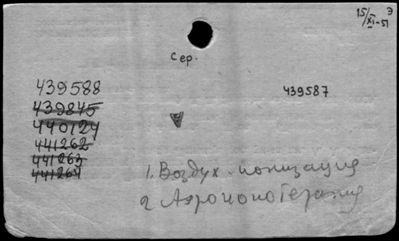 15/XI-51 Э
Сер.
439588
439587
439845
440124
441262
441263
441264
1. Воздух - ионизация
2 Аэроионотерапия